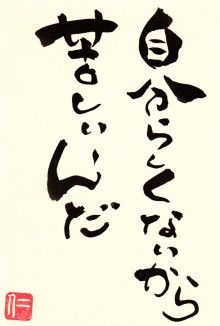 自分らしくないから
苦しいんだ
仁